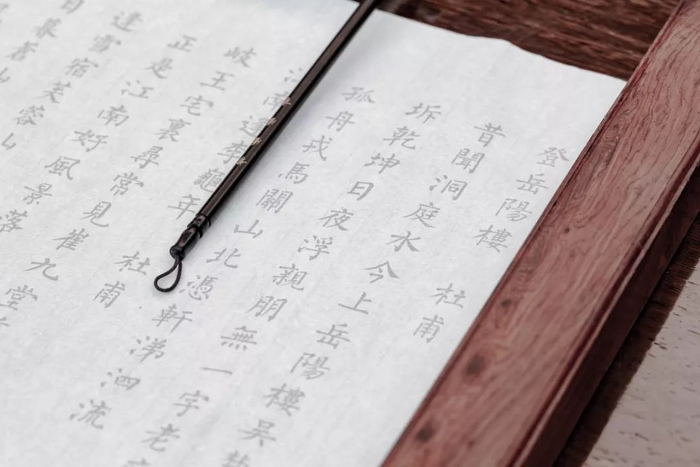 登岳陽樓 杜甫
昔聞洞庭水今上岳陽樓吳
坼乾坤日夜浮親朋無一字老
孤舟戎馬關山北憑軒涕泗流
南逢李龜年 杜甫
岐王宅裏尋常見崔九堂
正是江南好風景落
逢雪宿芙蓉山
日暮蒼山